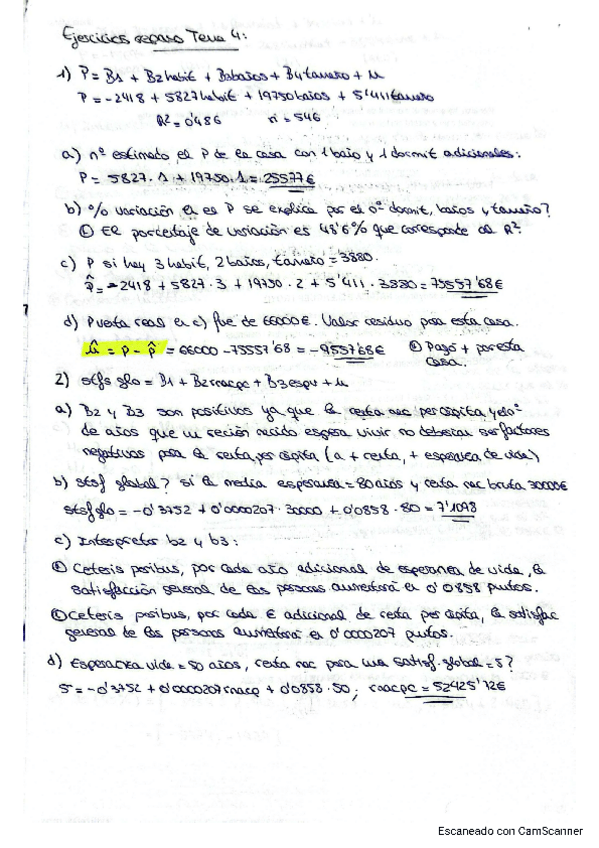 Ejercicios repaso Tema 4:
1) P = B1 + B2habit + B3baños + B4tamaño + u
P = -2418 + 5827habit + 19750baños + 5'411tamaño
R² = 0'486 n = 546
a) nº estimado el P de la casa con 1 baño y 1 dormit adicionales:
P = 5827·1 + 19750·1 = 25577€
b) % variación en el P se explica por el nº dormit, baños y tamaño?
El porcentaje de variación es 48'6% que corresponde al R².
c) P si hay 3 habit, 2 baños, tamaño = 3880.
p̂ = -2418 + 5827·3 + 19750·2 + 5'411·3880 = 75557'68€
d) P venta real (a.c) fue de 66000€. Valor residuo para esta casa.
û = P - p̂ = 66000 - 75557'68 = -9557'68€ Pagó + por esta
casa.
2) stfs glo = B1 + B2rnacpc + B3espv + u
a) B2 y B3 son positivos ya que la renta nac per cápita y el nº
de años que un recién nacido espera vivir no deberían ser factores
negativos para la renta per cápita (a + renta, + esperanza de vida)
b) stsf global? si la media esperanza = 80 años y renta nac bruta 30000€
stsfglo = -0'3752 + 0'0000207·30000 + 0'0858·80 = 7'1098
c) Interpretar b2 y b3:
Ceteris paribus, por cada año adicional de esperanza de vida, la
satisfacción general de las personas aumentará en 0'0858 puntos.
Ceteris paribus, por cada € adicional de renta per cápita, la satisfac
general de las personas aumentará en 0'0000207 puntos.
d) Esperanza vida = 50 años, renta nac para una satisf. global = 5?
5 = -0'3752 + 0'0000207rnacp + 0'0858·50; rnacpc = 52425'12€
Escaneado con CamScanner